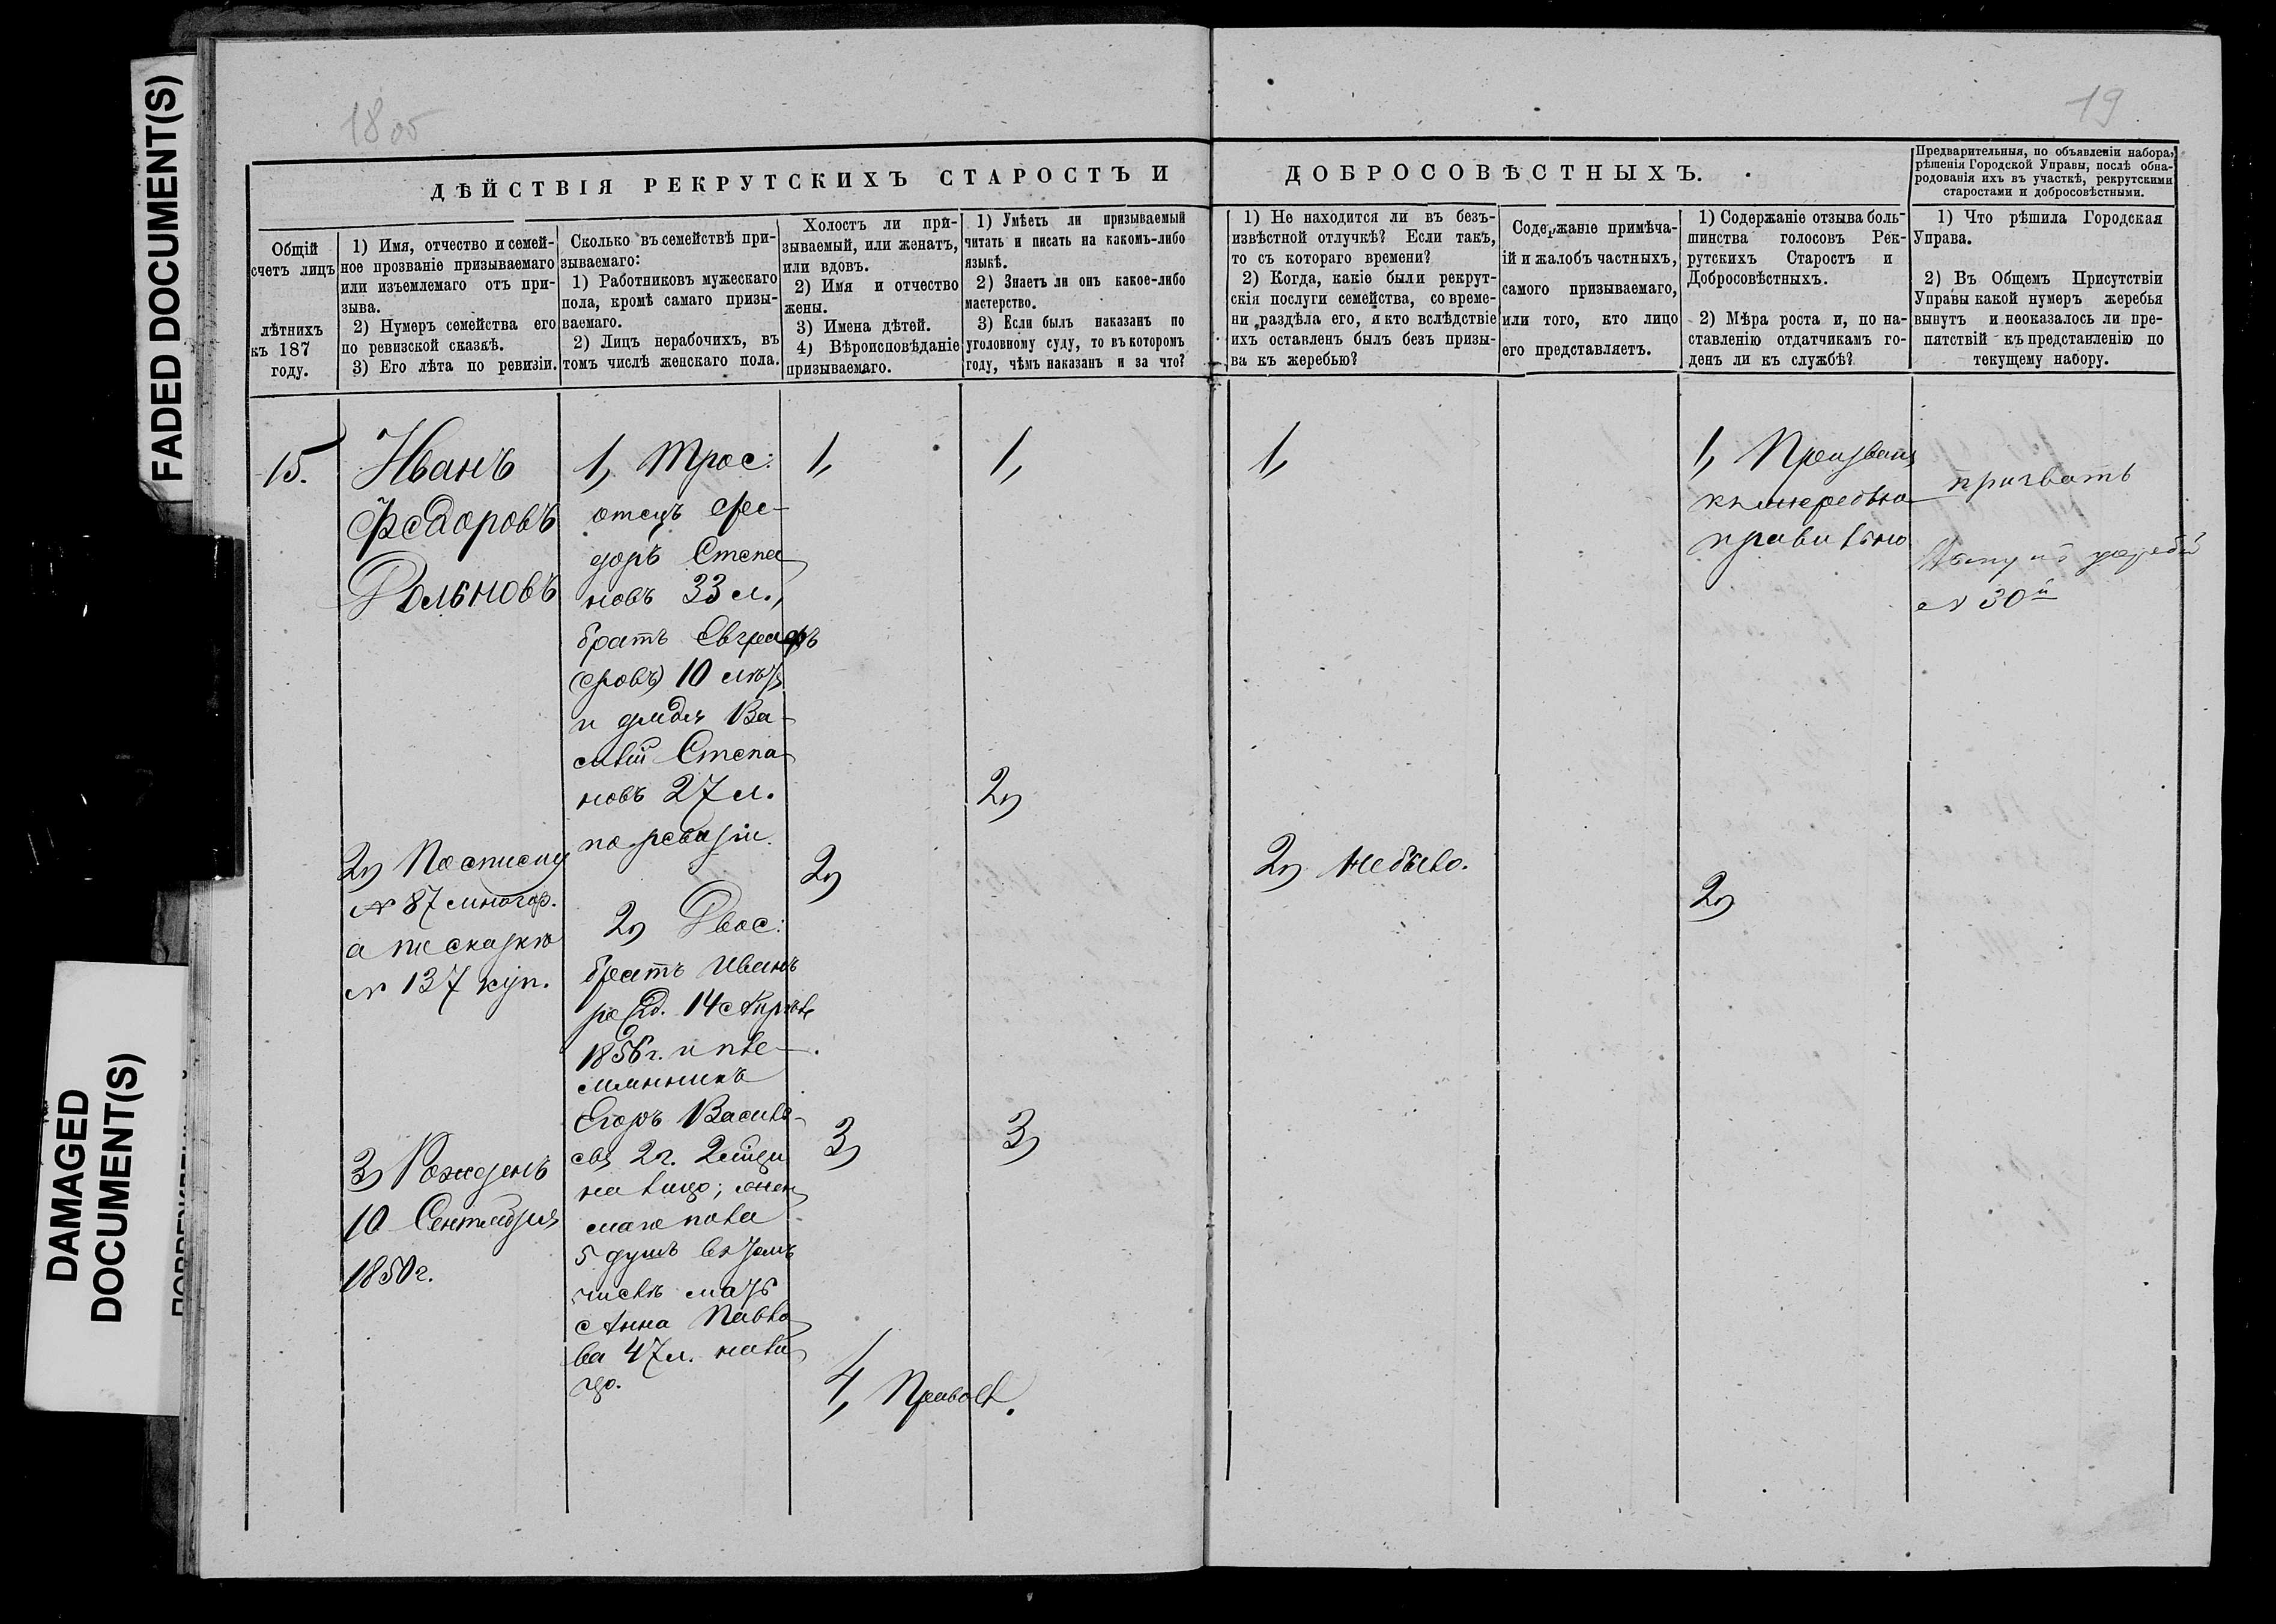 FADED DOCUMENT(S)
DAMAGED
DOCUMENT(S)
18 об
19
ДѢЙСТВІЯ РЕКРУТСКИХЪ СТАРОСТЪ И
ДОБРОСОВѢСТНЫХЪ.
Предварительныя, по объявленіи набора,
рѣшенія Городской Управы, послѣ обна-
родованія ихъ въ участкѣ, рекрутскими
старостами и добросовѣстными.
Общій
счетъ лицъ
лѣтнихъ
къ 187
году.
1) Имя, отчество и семей-
ное прозваніе призываемаго
или изъемлемаго отъ при-
зыва.
2) Нумеръ семейства его
по ревизской сказкѣ.
3) Его лѣта по ревизіи.
Сколько въ семействѣ при-
зываемаго:
1) Работниковъ мужескаго
пола, кромѣ самаго призы-
ваемаго.
2) Лицъ нерабочихъ, въ
томъ числѣ женскаго пола.
Холостъ ли при-
зываемый, или женатъ,
или вдовъ.
2) Имя и отчество
жены.
3) Имена дѣтей.
4) Вѣроисповѣданіе
призываемаго.
1) Умѣетъ ли призываемый
читать и писать на какомъ-либо
языкѣ.
2) Знаетъ ли онъ какое-либо
мастерство.
3) Если былъ наказанъ по
уголовному суду, то въ которомъ
году, чѣмъ наказанъ и за что?
1) Не находится ли въ безъ-
извѣстной отлучкѣ? Если такъ,
то съ котораго времени?
2) Когда, какіе были рекрут-
скія послуги семейства, со време-
ни раздѣла его, и кто вслѣдствіе
ихъ оставленъ былъ безъ призы-
ва къ жеребью?
Содержаніе примѣча-
ій и жалобъ частныхъ,
самого призываемаго,
или того, кто лицо
его представляетъ.
1) Содержаніе отзыва боль-
шинства голосовъ Рек-
рутскихъ Старостъ и
Добросовѣстныхъ.
2) Мѣра роста и, по на-
ставленію отдатчикамъ го-
денъ ли къ службѣ?
1) Что рѣшила Городская
Управа.
2) Въ Общемъ Присутствіи
Управы какой нумеръ жеребья
вынутъ и неоказалось ли пре-
пятствій къ представленію по
текущему набору.
15.
Иванъ
Федоровъ
2) По списку
№ 87 мног ор.
а по сказкѣ
№ 137 куп.
3) Рожденъ
10 Сентября
1850 г.
1, Трое:
отецъ Фе-
доръ Степа
новъ 33 л.,
братъ Евграфъ
10 лѣтъ
и дядя Ва-
силій Степа
новъ 27 л.
по ревизіи.
2) Двое:
братъ Иванъ
род. 14 Апрѣля
1856 г. и пле-
мянникъ
Егоръ Василь-
евъ 2 г.
на лицо; жен
скаго пола
5 душъ въ томъ
числѣ мать
Анна Павло
ва 47 л. на ли
цо.
1,
2)
3)
4, Правосл.
1,
2)
3)
1,
2) Не было.
1, Призвать
къ жеребью
правильно
2)
призвать
Вынулъ жребій
№ 30й